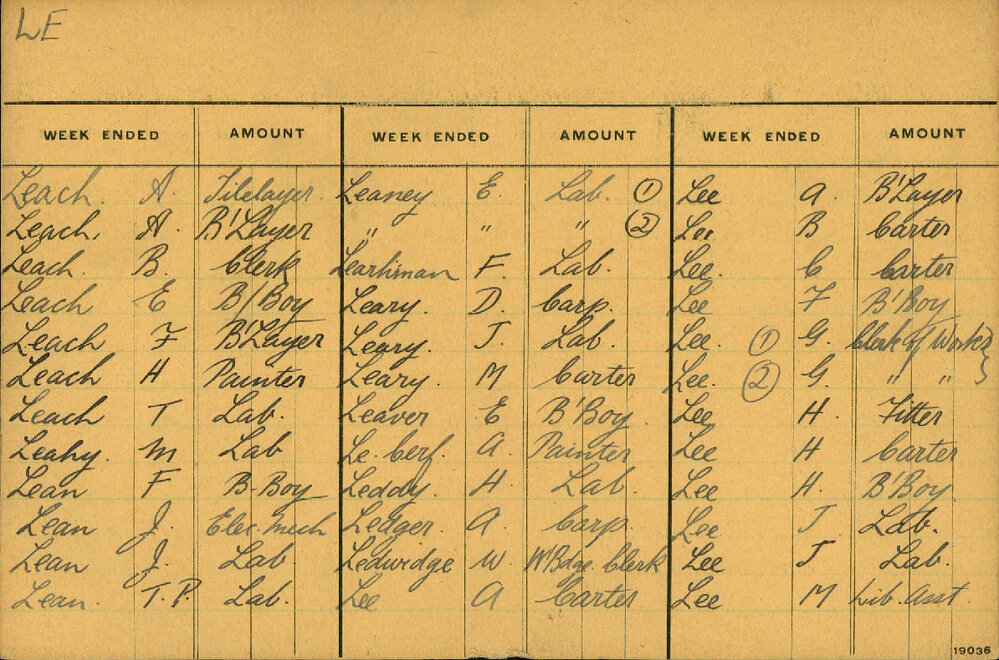 LE
WEEK ENDED AMOUNT WEEK ENDED AMOUNT WEEK ENDED AMOUNT
Leach. A. Tilelayer. Leaney E. Lab. ① Lee A. B'Layer
Leach. A. B'Layer " " " ② Lee B Carter
Leach. B. Clerk F. Lab. Lee. C Carter
Leach E B/Boy Leary. D. Carp. Lee F B'Boy
Leach F B'Layer Leary. J. Lab. Lee. ① G. Clerk of Works
Leach H Painter Leary. M Carter Lee. ② G. " "
Leach T Lab. Leaver E B'Boy Lee H. Fitter
Leahy. M Lab Le. Cerf. A. Painter Lee H Carter
Lean F B-Boy Leddy. H. Lab. Lee H. B'Boy
Lean J. Elec. Mech Ledger. A Carp. Lee J Lab.
Lean J. Lab. Ledwidge W. W'Bdge. Clerk Lee J Lab.
Lean. T.P. Lab. Lee A Carter Lee M Lib. Asst.
19036